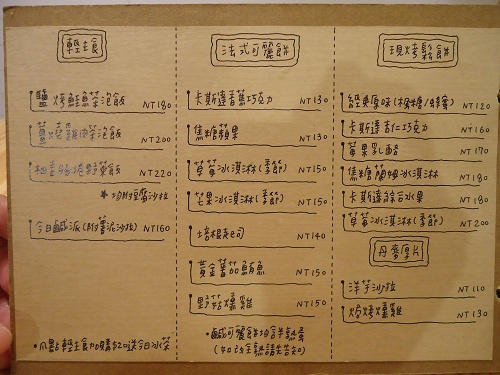 輕主食
鹽烤鮭魚茶泡飯 NT180
薑燒雞肉茶泡飯 NT200
NT220
＊均附豆腐沙拉
今日鹹派(附薯泥沙拉) NT160
•凡點輕主食加購$20送今日冰茶
法式可麗餅
卡斯達香蕉巧克力 NT130
焦糖蘋果 NT130
草莓冰淇淋(季節) NT150
芒果冰淇淋(季節) NT150
培根起司 NT140
黃金薯茄鮪魚 NT150
野菇燻雞 NT150
•鹹可麗餅均含半熟蛋
(如改全熟請告知)
現烤鬆餅
經典原味(楓糖/蜂蜜) NT120
卡斯達杏仁巧克力 NT160
莓果乳酪 NT170
焦糖蘭姆冰淇淋 NT180
卡斯達綜合水果 NT180
草莓冰淇淋(季節) NT200
丹麥厚片
洋芋沙拉 NT110
焗烤燻雞 NT130